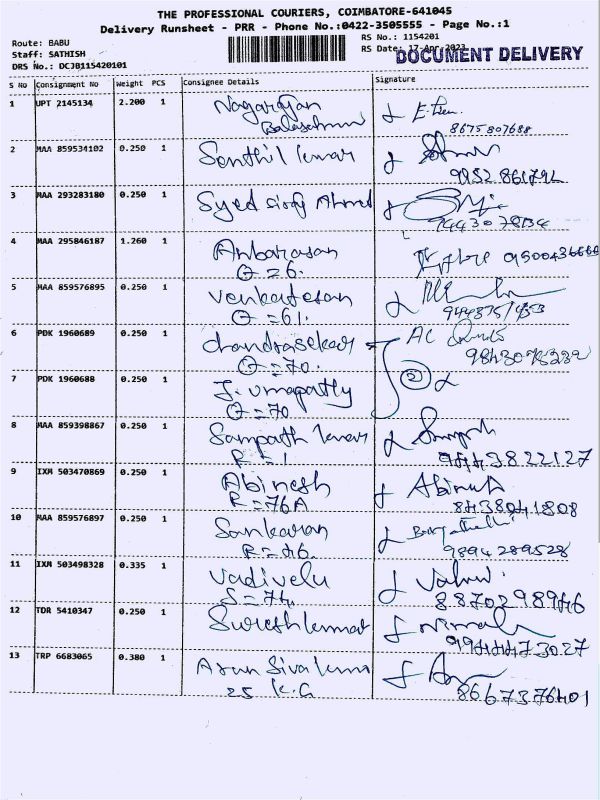 THE PROFESSIONAL COURIERS, COIMBATORE-641045
Delivery Runsheet - PRR - Phone No.:0422-3505555 - Page No.:1
Route: BABU
Staff: SATHISH
DRS No.: DCJB115420101
RS No.: 1154201
RS Date: 17-Apr-2023
DOCUMENT DELIVERY
S No Consignment No Weight PCS Consignee Details Signature
1 UPT 2145134 2.200 1 Nagarajan
8675807688
2 MAA 859534102 0.250 1 Senthil kumar
9952861792
3 MAA 293283180 0.250 1 Syed siraj Ahmed
4 MAA 295846187 1.260 1 Anbarasan
Q = 6.
5 MAA 859576895 0.250 1 Venkatesan
Q = 61.
6 PDK 1960689 0.250 1 chandrasekar AC
Q = 70.
7 PDK 1960688 0.250 1 J. umapathy 2
Q = 70
8 MAA 859398867 0.250 1 Sampath kumar
R = 1 9443822127
9 IXM 503470869 0.250 1 Abinesh Abinesh
R = 76A 8438041808
10 MAA 859576897 0.250 1 Sankaran
R = 46. 9894289528
11 IXM 503498328 0.335 1 Vadivelu
S = 74. 8870298946
12 TDR 5410347 0.250 1 Sureshkumar
9944473027
13 TRP 6683065 0.380 1 Arun Sivakumar
25 K.G 8667376401